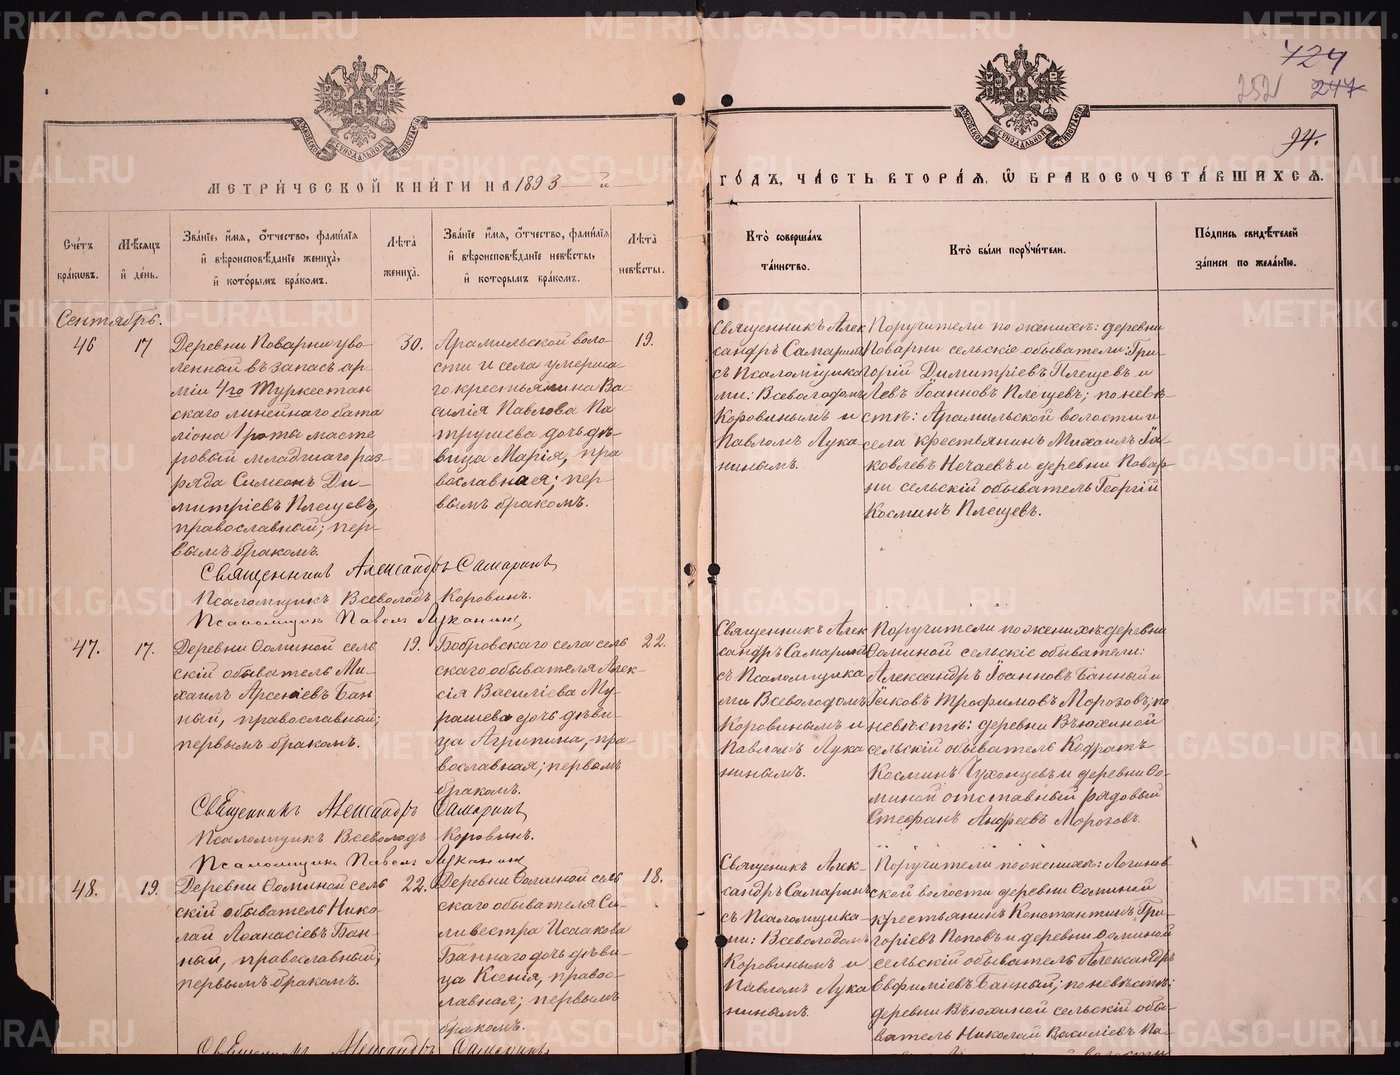 724
252 247
94.
МЕТРИЧЕСКОЙ КНИГИ НА 1893 й
ГОДЪ, ЧАСТЬ ВТОРАЯ, Ѿ БРАКОСОЧЕТАВШИХСЯ.
Счетъ браковъ.
Мѣсяцъ и день.
Званіе, имя, отчество, фамилія и вѣроисповѣданіе жениха, и которымъ бракомъ.
Лѣта жениха.
Званіе имя, отчество, фамилія и вѣроисповѣданіе невѣсты, и которымъ бракомъ.
Лѣта невѣсты.
Кто совершалъ таинство.
Кто были поручители.
Подпись свидѣтелей записи по желанію.
Сентябрь.
46
17
Деревни Поварни уво-
ленный въ запасъ ар-
міи 4го Туркестан
скаго линейнаго бата
ліона 1 роты масте
ровый младшаго раз-
ряда Симеонъ Ди-
митріевъ Плещевъ,
православный; пер-
вымъ бракомъ.
30.
Арамильской воло
сти и села умерша-
го крестьянина Ва
силія Павлова Па
трушева дочь дѣ-
вица Марія, пра
вославная; пер-
вымъ бракомъ.
19.
Священникъ Алек
сандръ Самаринъ
съ Псаломщика
ми: Всеволодомъ
Коровинымъ и
Павломъ Лука
нинымъ.
Поручители по женихѣ: деревни
Поварни сельскіе обыватели: Гри-
горій Димитріевъ Плещевъ и
Левъ Іоанновъ Плещевъ; по невѣ
стѣ: Арамильской волости и
села крестьянинъ Михаилъ Іа-
ковлевъ Нечаевъ и деревни Повар
ни сельскій обыватель Георгій
Космин Плещевъ.
Священникъ Александръ Самаринъ
Псаломщикъ Всеволодъ Коровинъ.
Псаломщикъ Павелъ Луканинъ
47.
17.
Деревни Ѳоминой сель
скій обыватель Ми-
хаилъ Арсеніевъ Бан
ный, православный;
первымъ бракомъ.
19.
Бобровскаго села сель
скаго обывателя Алек-
сія Василіева Му-
рашева дочь дѣви-
ца Агрипина, пра-
вославная; первымъ
бракомъ.
22.
Священникъ Алек
сандръ Самаринъ
съ Псаломщика
ми Всеволодомъ
Коровинымъ и
Павломъ Лука
нинымъ.
Поручители по женихѣ: деревни
Ѳоминой сельскіе обыватели:
Александръ Іоанновъ Банный и
Іаковъ Трофимовъ Морозовъ; по
невѣстѣ: деревни Вьюхиной
сельскій обыватель Кодратъ
Косминъ Чухонцевъ и деревни Ѳо-
миной отставный рядовый
Стефанъ Андреевъ Морозовъ.
Священникъ Александръ Самаринъ
Псаломщикъ Всеволодъ Коровинъ.
Псаломщикъ Павелъ Луканинъ
48.
19.
Деревни Ѳоминой сель
скій обыватель Нико-
лай Аѳанасіевъ Бан-
ный, православный;
первымъ бракомъ.
22.
Деревни Ѳоминой сель
скаго обывателя Си-
ливестра Исаакова
Баннаго дочь дѣви-
ца Ксенія, правос-
лавная; первымъ
бракомъ.
18.
Священикъ Алек-
сандръ Самаринъ
съ Псаломщика-
ми: Всеволодомъ
Коровинымъ и
Павломъ Лука
нинымъ.
Поручители по женихѣ: Логинов
ской волости деревни Ѳоминой
крестьянинъ Константинъ Гри-
горіевъ Поповъ и деревни Ѳоминой
сельскій обыватель Александръ
Евфиміевъ Банный; по невѣстѣ:
деревни Вьюхиной сельскій обы-
ватель Николай Василіевъ Па-
Священникъ Александръ Самаринъ
METRIKI.GASO-URAL.RU